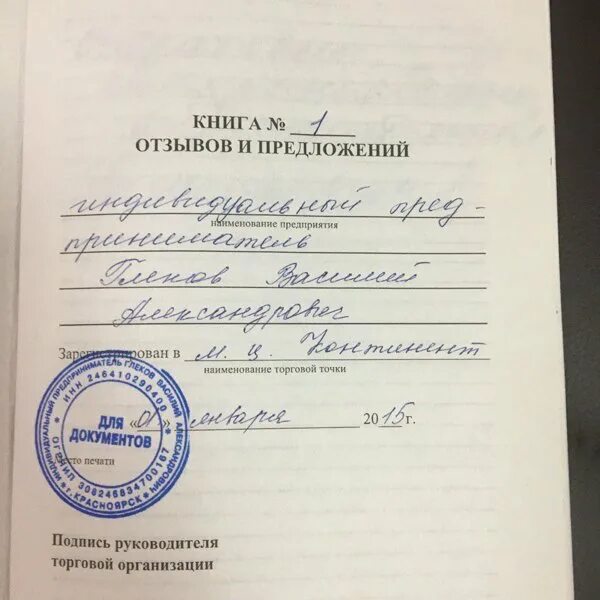 КНИГА № 1
ОТЗЫВОВ И ПРЕДЛОЖЕНИЙ
индивидуальный пред-
наименование предприятия
приниматель
Глеков Василий
Александрович
Зарегистрирован в м. ц. Континент
наименование торговой точки
«01» января 2015г.
Место печати
ИНДИВИДУАЛЬНЫЙ ПРЕДПРИНИМАТЕЛЬ ГЛЕКОВ ВАСИЛИЙ АЛЕКСАНДРОВИЧ
ИНН 246410290400
ДЛЯ
ДОКУМЕНТОВ
ОГРНИП 306246834700167
г.КРАСНОЯРСК
Подпись руководителя
торговой организации